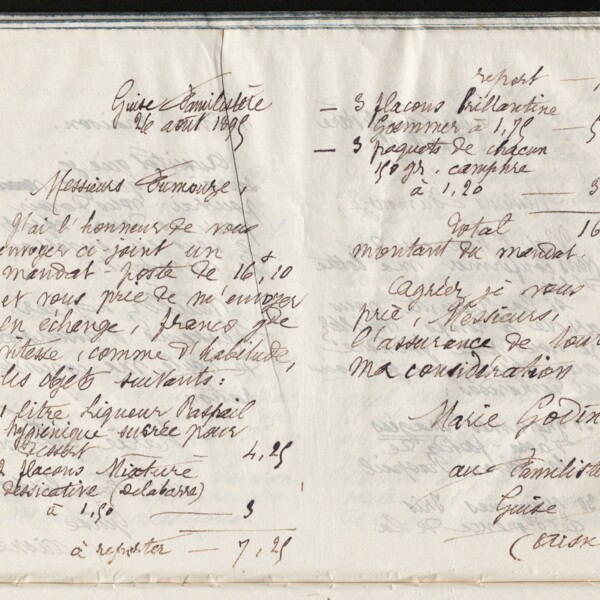 Guise Familistère
26 août 1895
Messieurs Fumouze,
J'ai l'honneur de vous
envoyer ci-joint un
mandat-poste de 16f,10
et vous prie de m'envoyer
en échange, franco gde
vitesse, comme d'habitude,
les objets suivants :
1 litre Liqueur Raspail
hygiénique sucrée pour
dessert 4,25
2 flacons Mixture
dessicative (Delabarre)
à 1,50 — 3
à reporter — 7,25
report —
— 3 flacons brillantine
Gommer à 1,75 — 5
— 3 paquets de chacun
150 gr. camphre
à 1,20 — 3
Total 16
montant du mandat.
Agréer je vous
prie, Messieurs,
l'assurance de toute
ma considération
Marie Godin
au Familistè
Guise
(Aisne